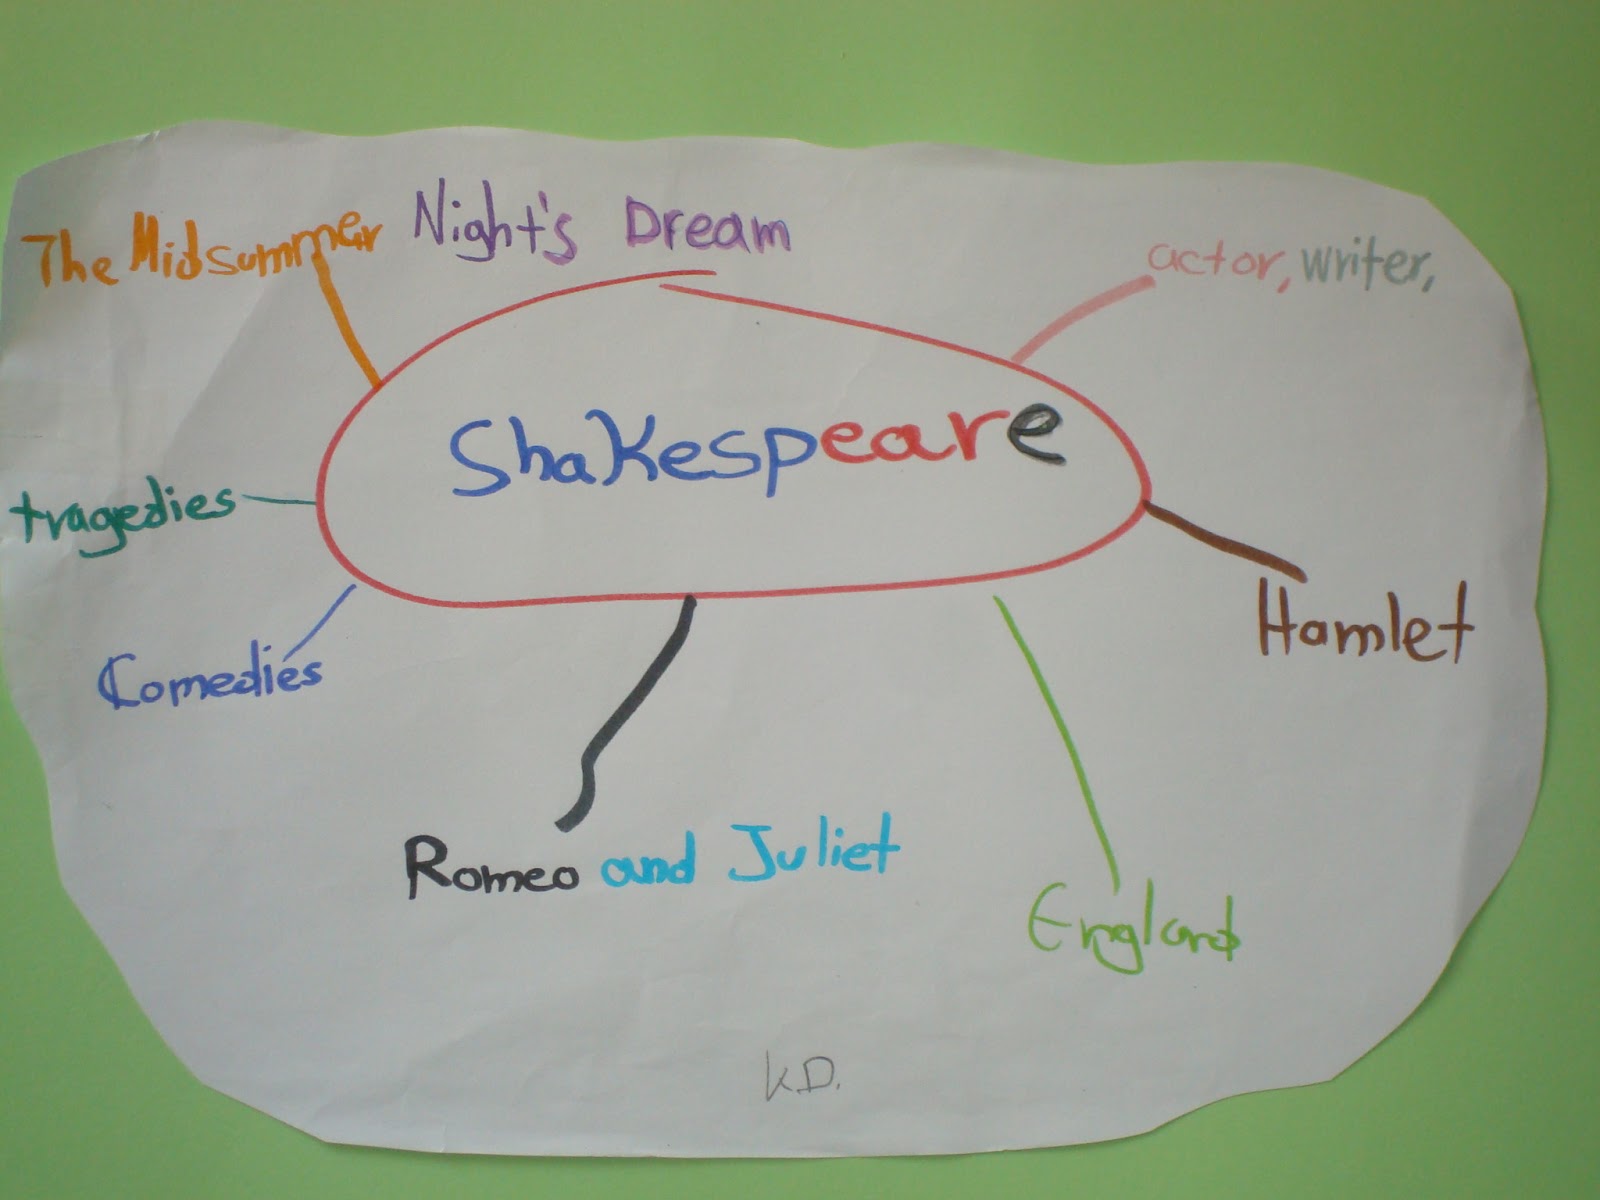 The Midsummer Night's Dream
actor, writer,
Shakespeare
tragedies
Hamlet
Comedies
Romeo and Juliet
England
K.D.